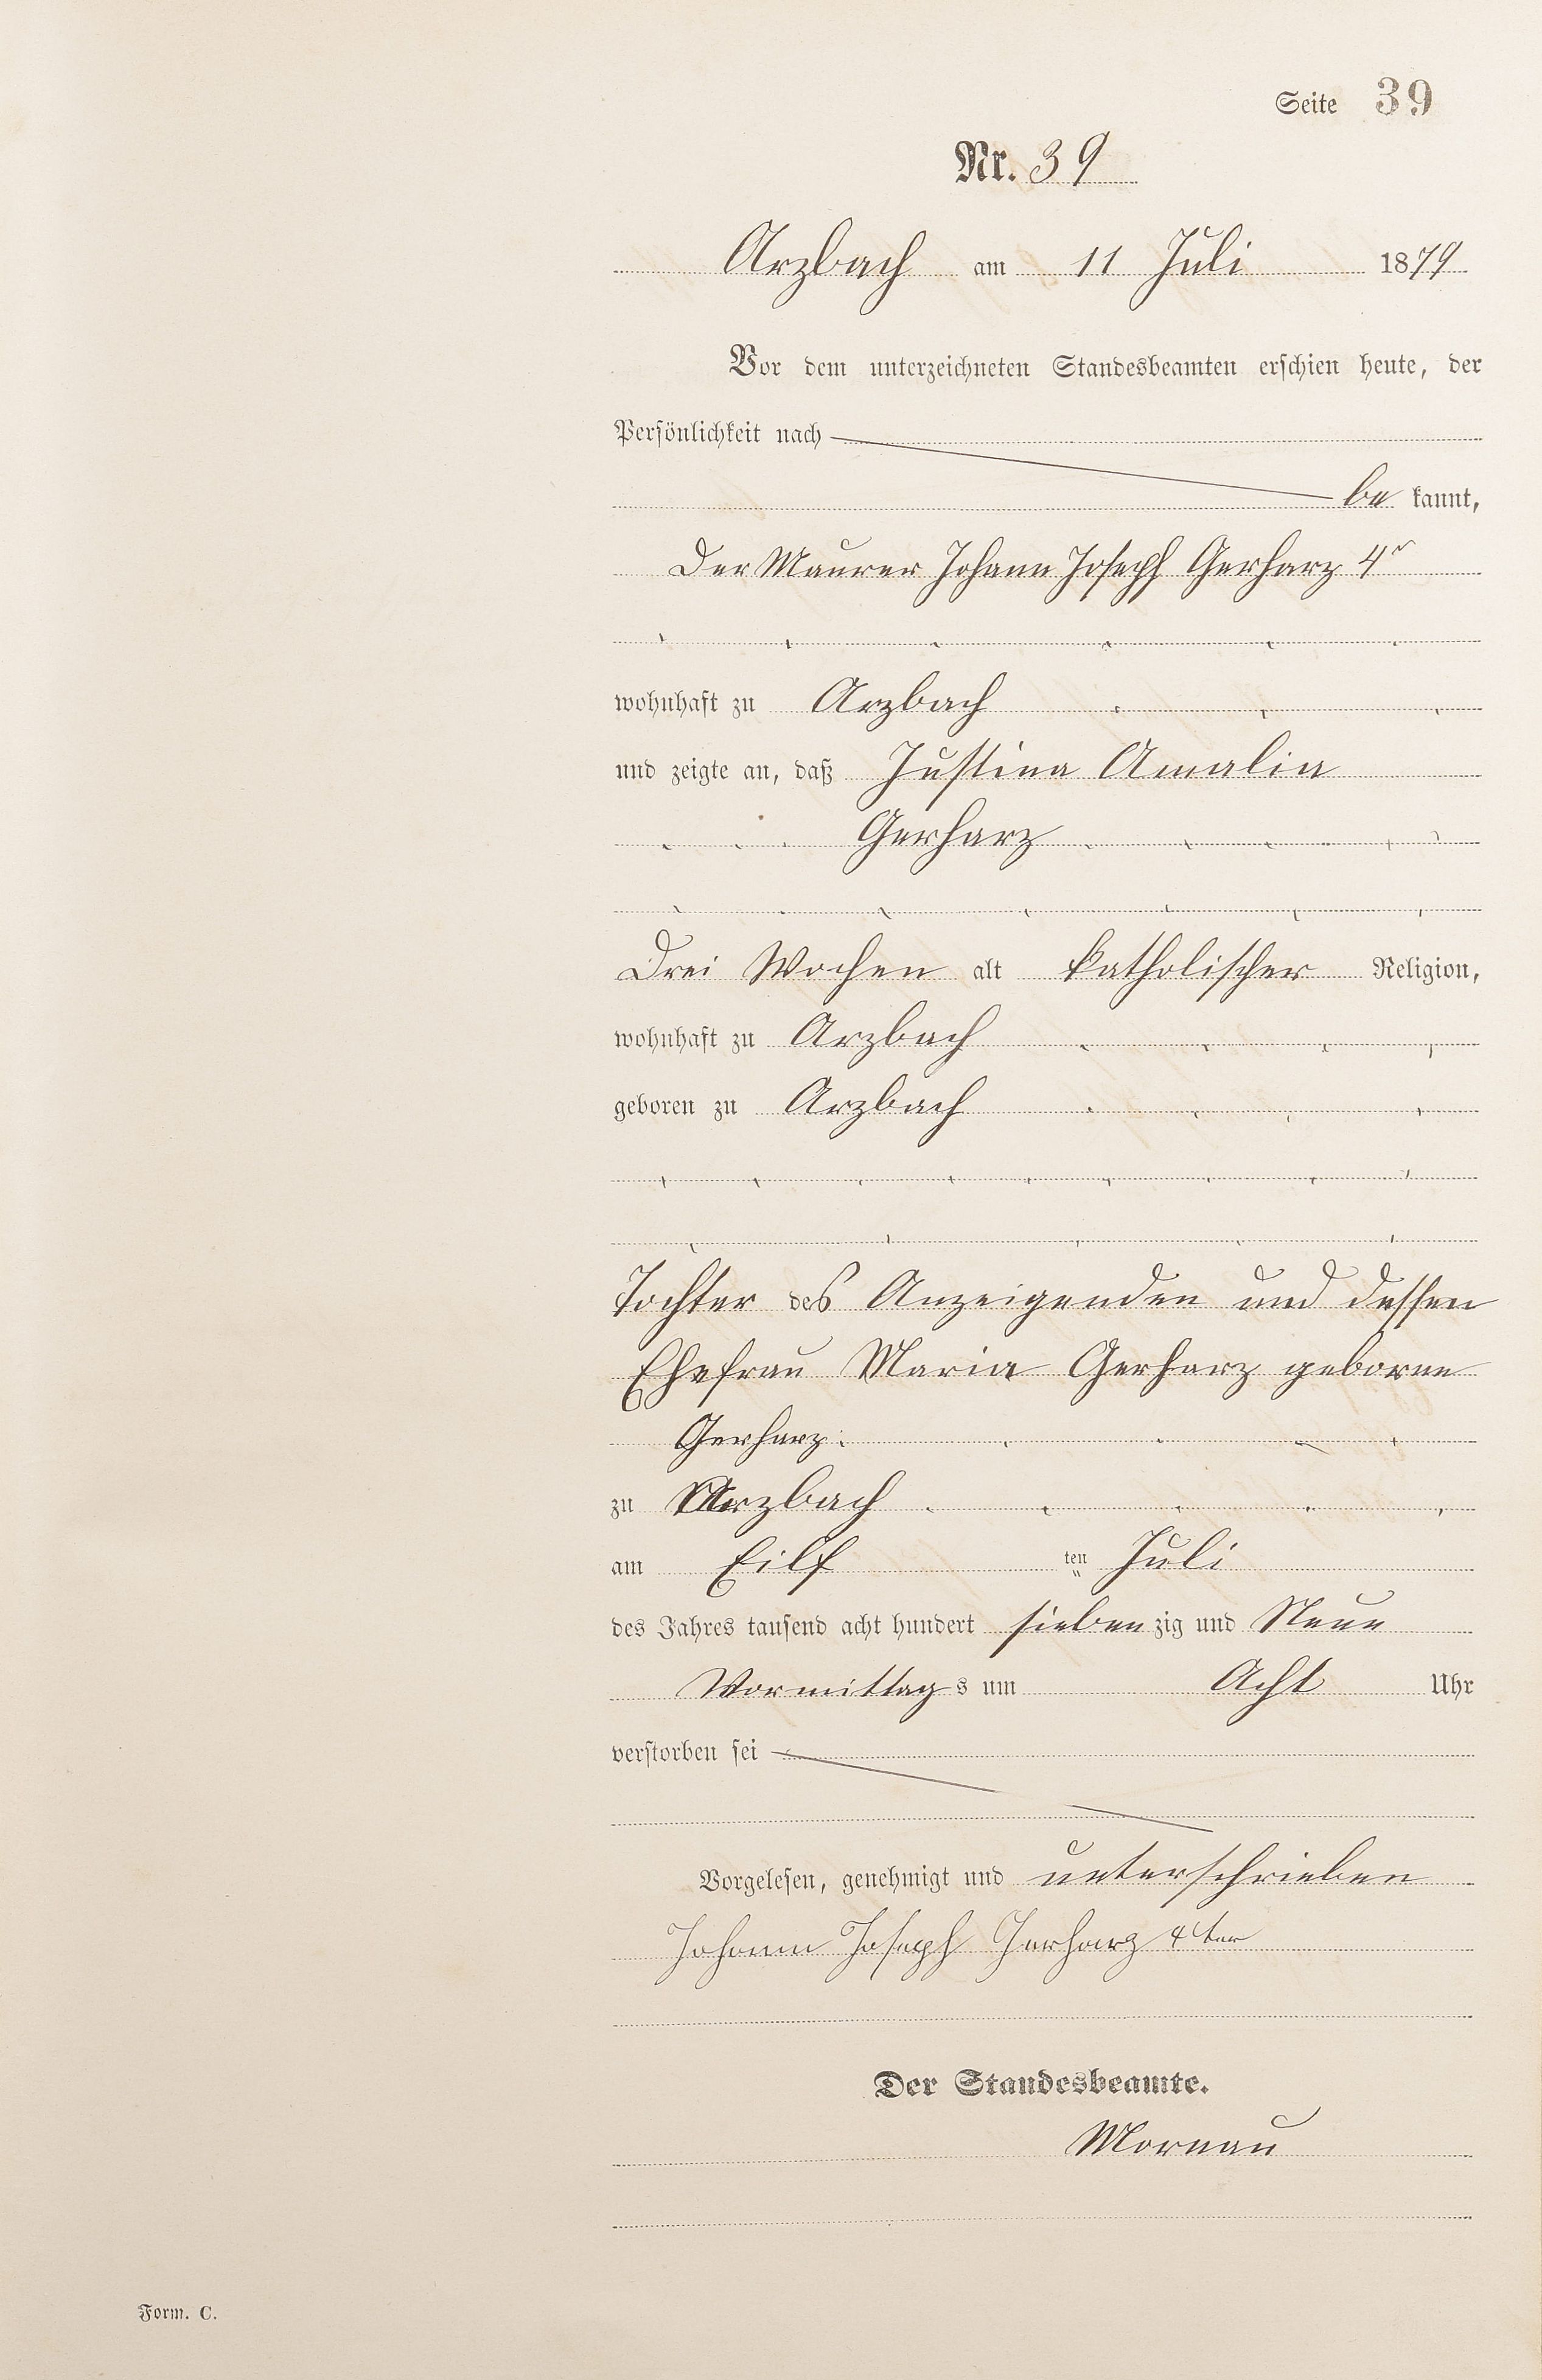 Seite 39
Nr. 39
Arzbach am 11 Juli 1879
Vor dem unterzeichneten Standesbeamten erschien heute, der
Persönlichkeit nach
be kannt,
Der Maurer Johann Joseph Gerharz 4r
wohnhaft zu Arzbach
und zeigte an, daß Justina Amalia
Gerharz
Drei Wochen alt katholischer Religion,
wohnhaft zu Arzbach
geboren zu Arzbach
Tochter des Anzeigenden und dessen
Ehefrau Maria Gerharz geborne
Gerharz.
zu Arzbach
am Eilf ten Juli
des Jahres tausend acht hundert sieben zig und Neun
Vormittag s um Acht Uhr
verstorben sei
Vorgelesen, genehmigt und unterschrieben
Johann Joseph Gerharz 4ter
Der Standesbeamte.
Mornau
Form. C.